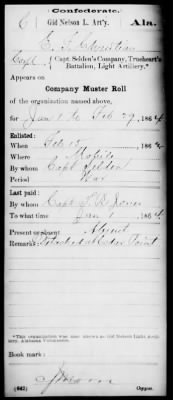 Confederate.
C | Gid Nelson L. Art'y. | Ala.
E. T. Christian
Corpl., Capt. Selden's Company, Trueheart's
Battalion, Light Artillery.*
Appears on
Company Muster Roll
of the organization named above,
for Jan 1 to Feb 29, 1864
Enlisted:
When Feb 13, 186
Where Mobile
By whom Capt Selden
Period War
Last paid:
By whom Capt
To what time Jan 1, 186
Present or absent Absent
Remarks: Detached at Cedar Point
*This organization was also known as Gid Nelson Light Artillery, Alabama Volunteers.
Book mark:
(642)
Copyist.